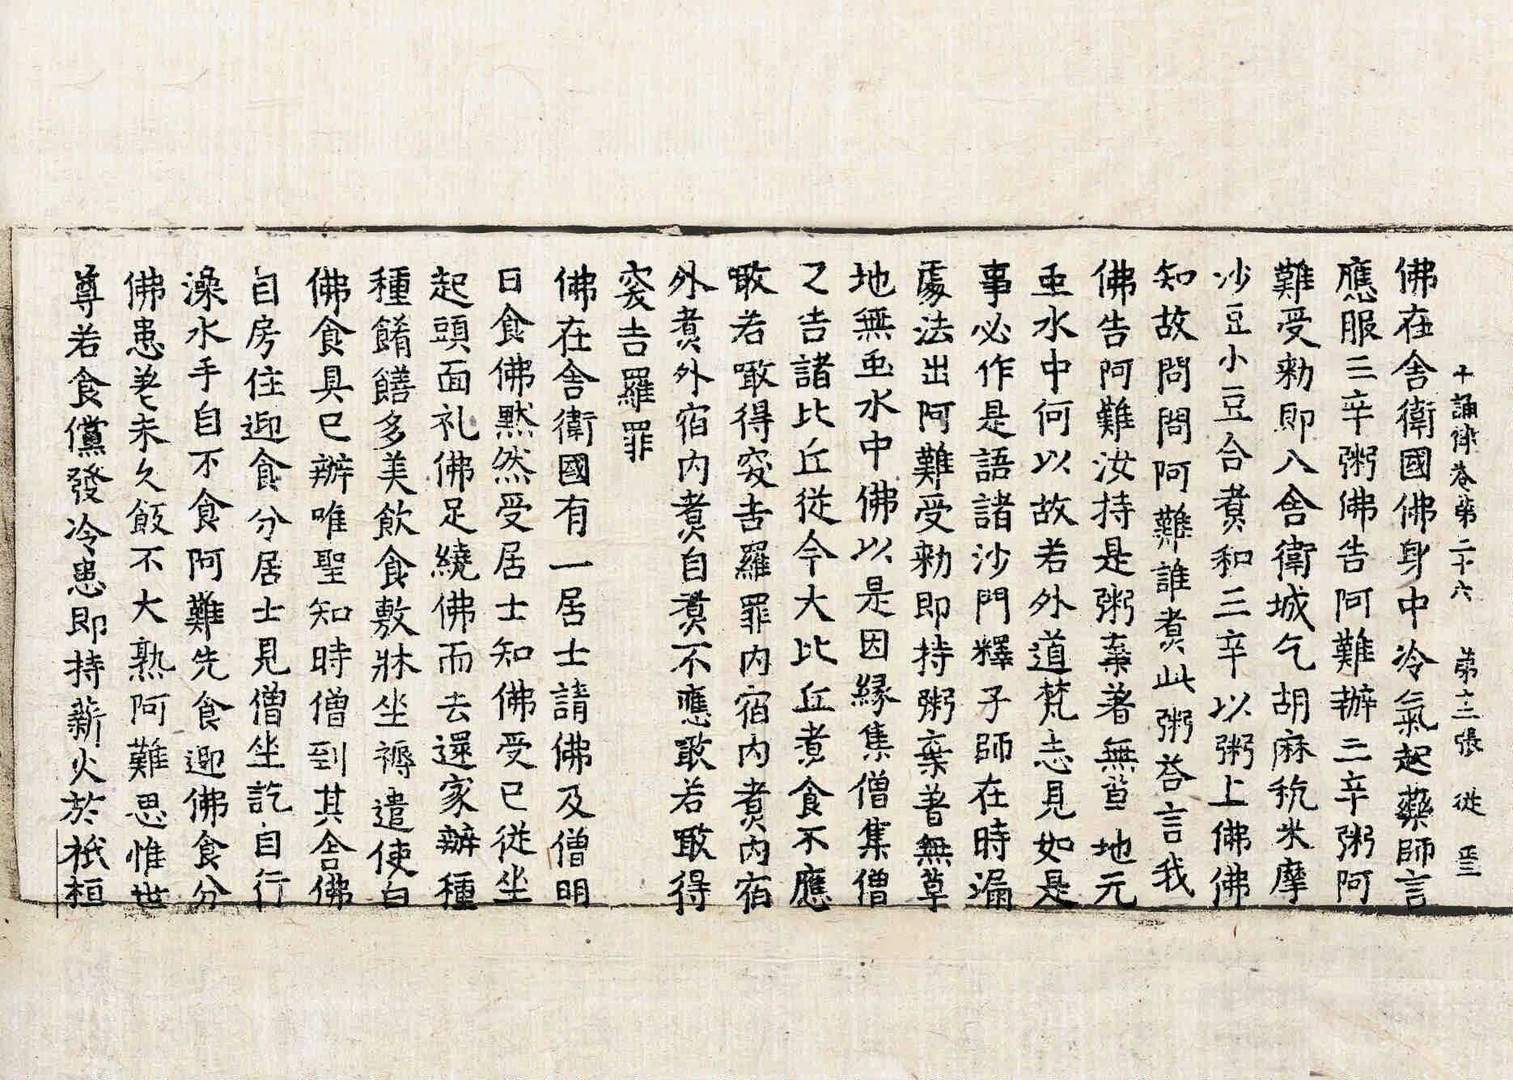 十誦律卷第二十六　第十三張　從　亖
佛在舍衛國佛身中冷氣起藥師言
應服三辛粥佛告阿難辦三辛粥阿
難受勑即入舍衛城乞胡麻秔米摩
沙豆小豆合煮和三辛以粥上佛佛
知故問問阿難誰煮此粥荅言我
佛告阿難汝持是粥棄著無草地无
虫水中何以故若外道梵志見如是
事必作是語諸沙門釋子師在時漏
處法出阿難受勑即持粥棄著無草
地無虫水中佛以是因縁集僧集僧
已告諸比丘從今大比丘煮食不應
噉若噉得突吉羅罪內宿內煮內宿
外煮外宿內煮自煮不應噉若噉得
突吉羅罪
佛在舍衛國有一居士請佛及僧明
日食佛黙然受居士知佛受已從坐
起頭面礼佛足繞佛而去還家辦種
種餚饍多美飲食敷牀坐褥遣使白
佛食具已辦唯聖知時僧到其舍佛
自房住迎食分居士見僧坐訖自行
澡水手自下食阿難先食迎佛食分
佛患差未久飯不大熟阿難思惟世
尊若食儻發冷患即持薪火於祇桓